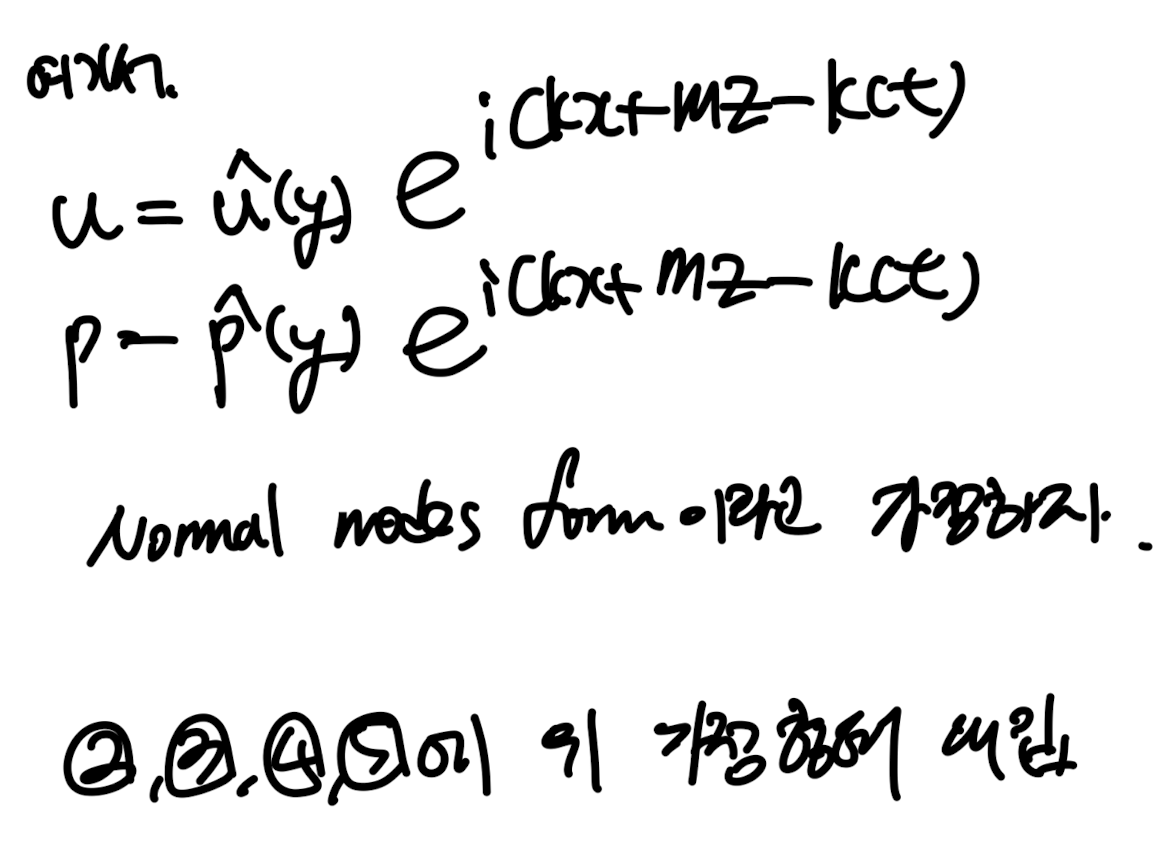 여기서.
u = û(y) e^{i(kx+mz-kct)}
p = p̂(y) e^{i(kx+mz-kct)}
Normal modes form 이라고 가정하자.
②,③,④,⑤에 위 가정 형태 대입